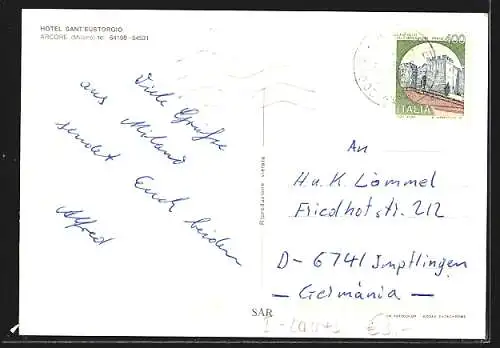 HOTEL SANT'EUSTORGIO
ARCORE (Milano)
Viele Grüsse
aus Milano
sendet Euch beiden
Alfred
Riproduzione vietata
SAR
400
ITALIA
An
H u. K Lömmel
Friedhofstr. 212
D- 6741 Impflingen
- Germánia -